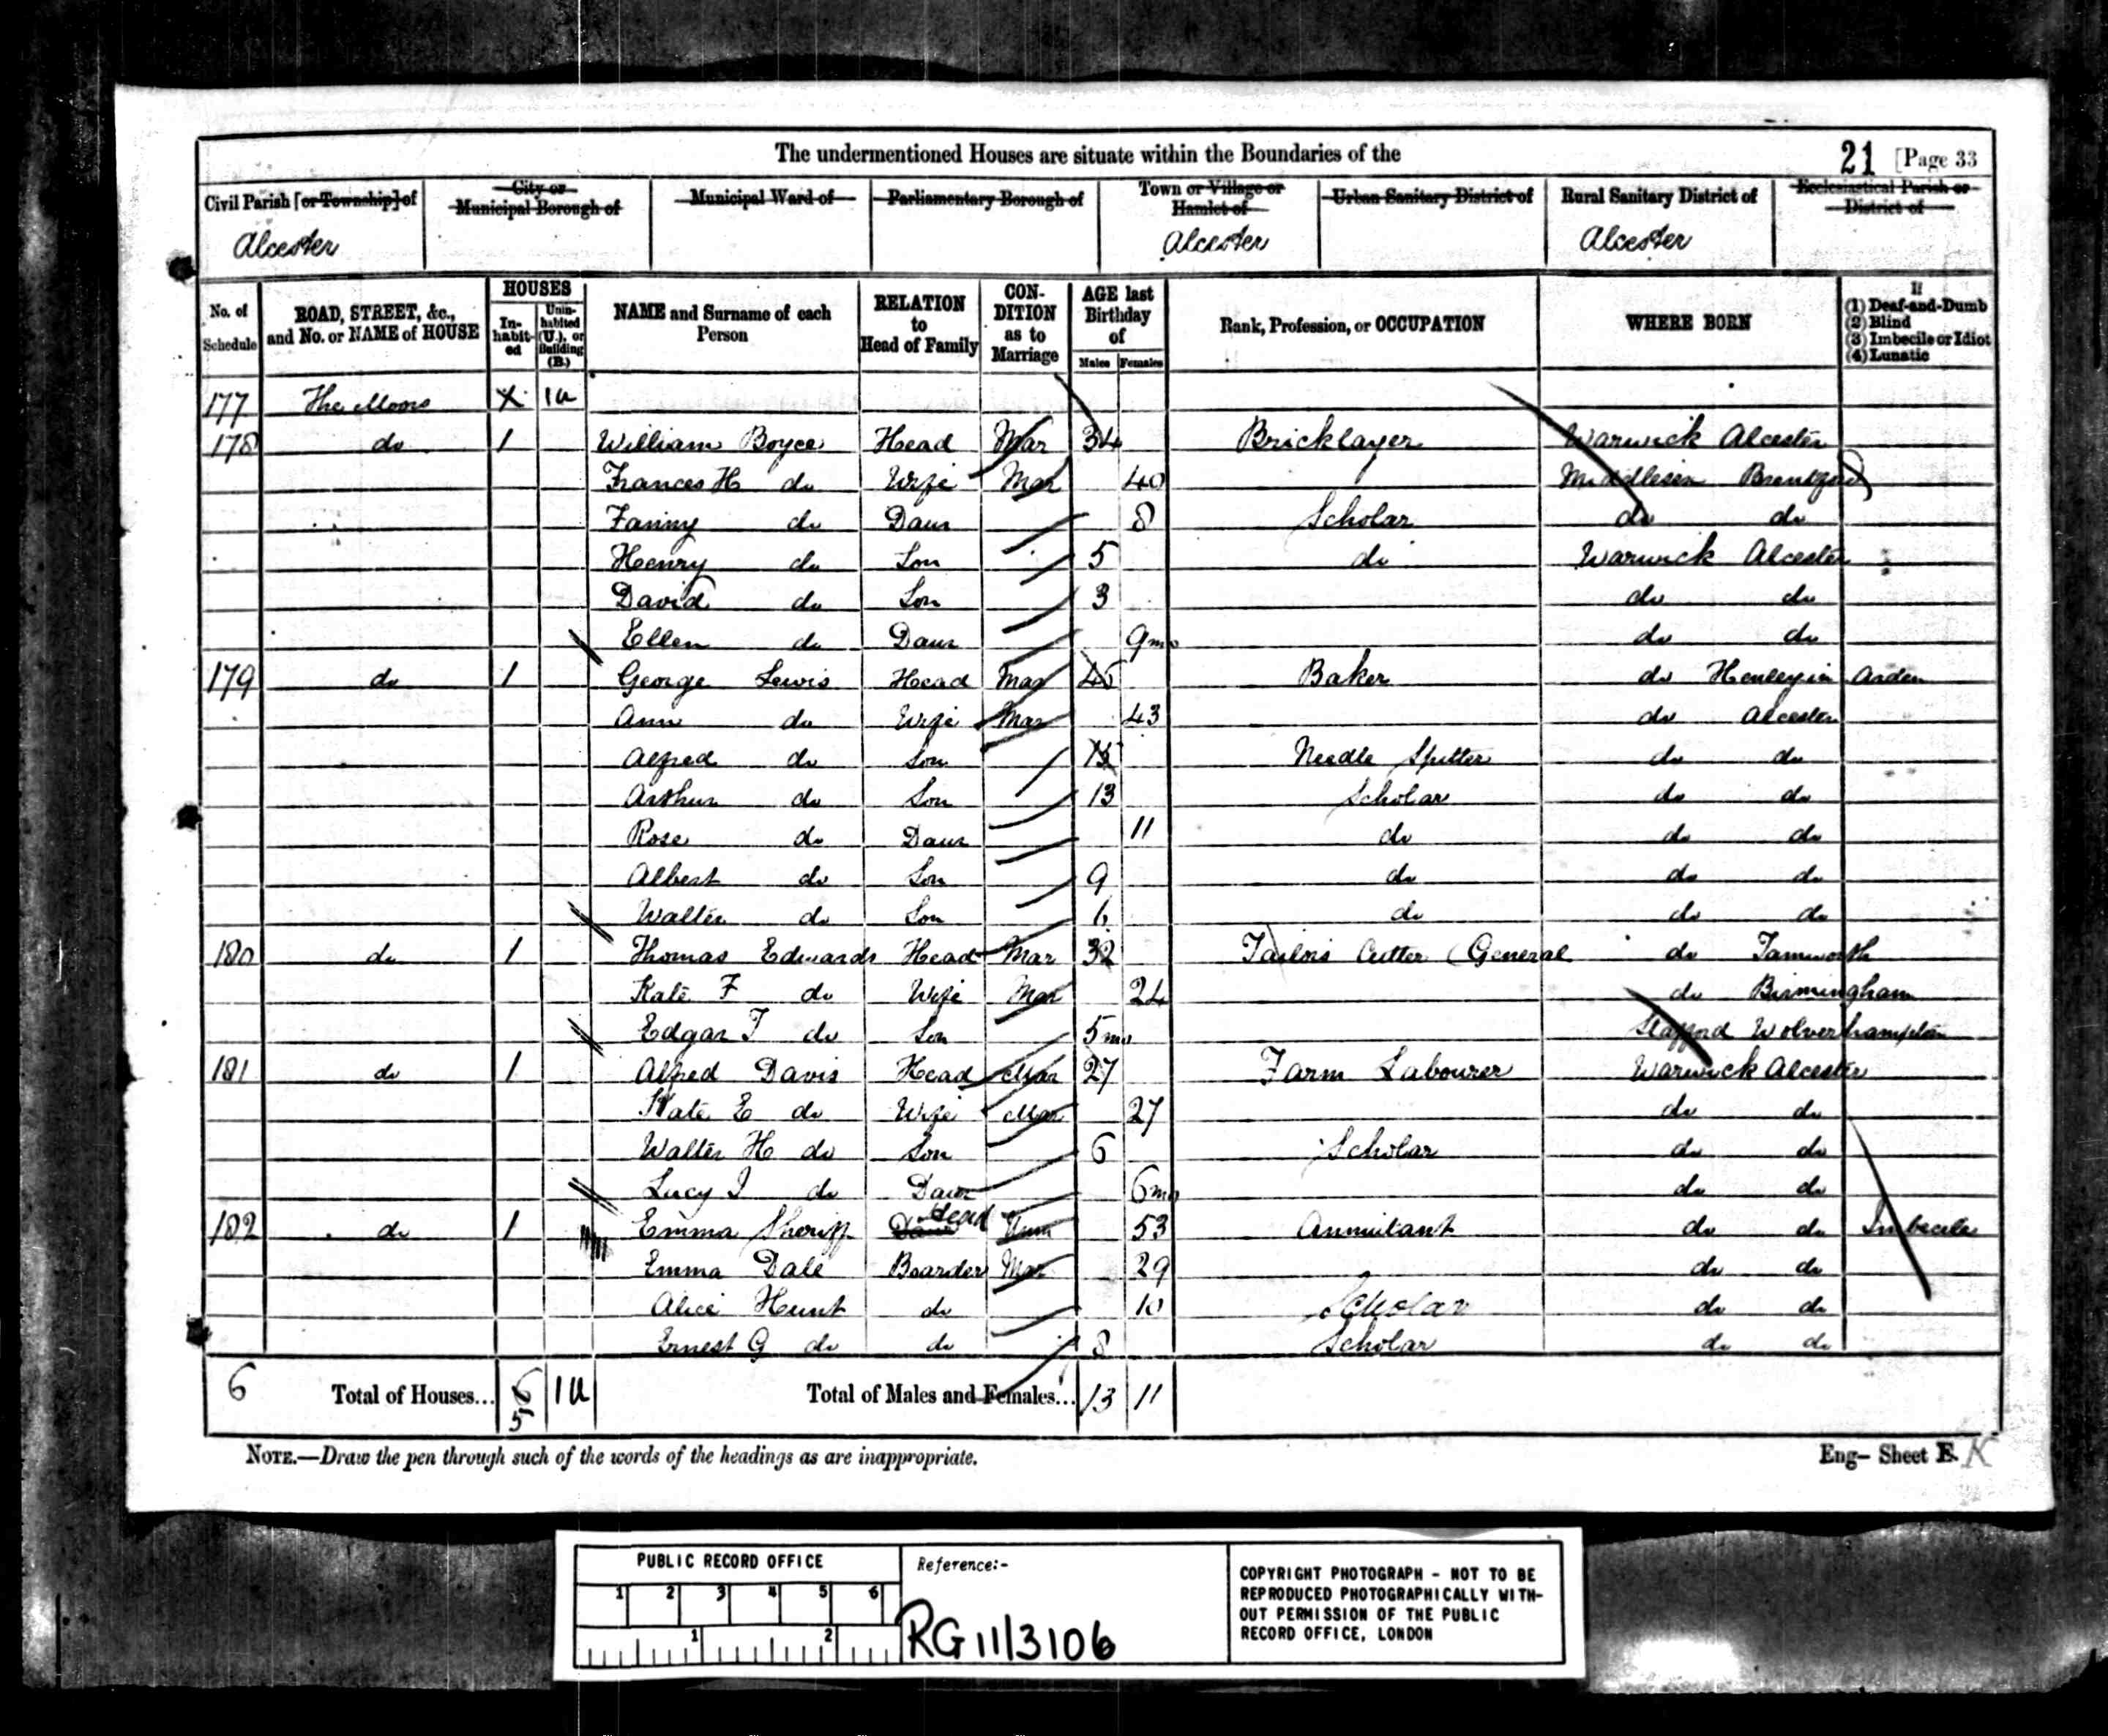 The undermentioned Houses are situate within the Boundaries of the 21 [Page 33
Civil Parish [or Township] of City or Municipal Borough of Municipal Ward of Parliamentary Borough of Town or Village or Hamlet of Urban Sanitary District of Rural Sanitary District of Ecclesiastical Parish or District of
Alcester Alcester Alcester
No. of Schedule ROAD, STREET, &c., and No. or NAME of HOUSE HOUSES In-habit-ed Unin-habited (U.), or Building (B.) NAME and Surname of each Person RELATION to Head of Family CON-DITION as to Marriage AGE last Birthday of Males Females Rank, Profession, or OCCUPATION WHERE BORN If (1) Deaf-and-Dumb (2) Blind (3) Imbecile or Idiot (4) Lunatic
177 The Moors X 1U
178 do 1 William Boyce Head Mar 34 Bricklayer Warwick Alcester
Frances H do Wife Mar 40 Middlesex Brentford
Fanny do Daur 8 Scholar do do
Henry do Son 5 do Warwick Alcester
David do Son 3 do do
Ellen do Daur 9mo do do
179 do 1 George Lewis Head Mar 45 Baker do Henley in Arden
Ann do Wife Mar 43 do Alcester
Alfred do Son Needle do do
Arthur do Son 13 Scholar do do
Rose do Daur 11 do do do
Albert do Son 9 do do do
Walter do Son 6 do do do
180 do 1 Thomas Edwards Head Mar 32 Tailors Cutter (General do Tamworth
Kate F do Wife Mar 24 do Birmingham
Edgar T do Son 5mo Stafford Wolverhampton
181 do 1 Alfred Davis Head Mar 27 Farm Labourer Warwick Alcester
Kate E do Wife Mar 27 do do
Walter H do Son 6 Scholar do do
Lucy J do Daur 6mo do do
182 do 1 Emma Sheriff Daur Head Unm 53 Annuitant do do Imbecile
Emma Dale Boarder Mar 29 do do
Alice Hunt do 10 Scholar do do
Ernest G do do 8 Scholar do do
6 Total of Houses... 6 5 1U Total of Males and Females... 13 11
NOTE.—Draw the pen through such of the words of the headings as are inappropriate.
Eng– Sheet E. K
PUBLIC RECORD OFFICE
1 2 3 4 5 6
1 2
Reference:-
RG11/3106
COPYRIGHT PHOTOGRAPH - NOT TO BE
REPRODUCED PHOTOGRAPHICALLY WITH-
OUT PERMISSION OF THE PUBLIC
RECORD OFFICE, LONDON